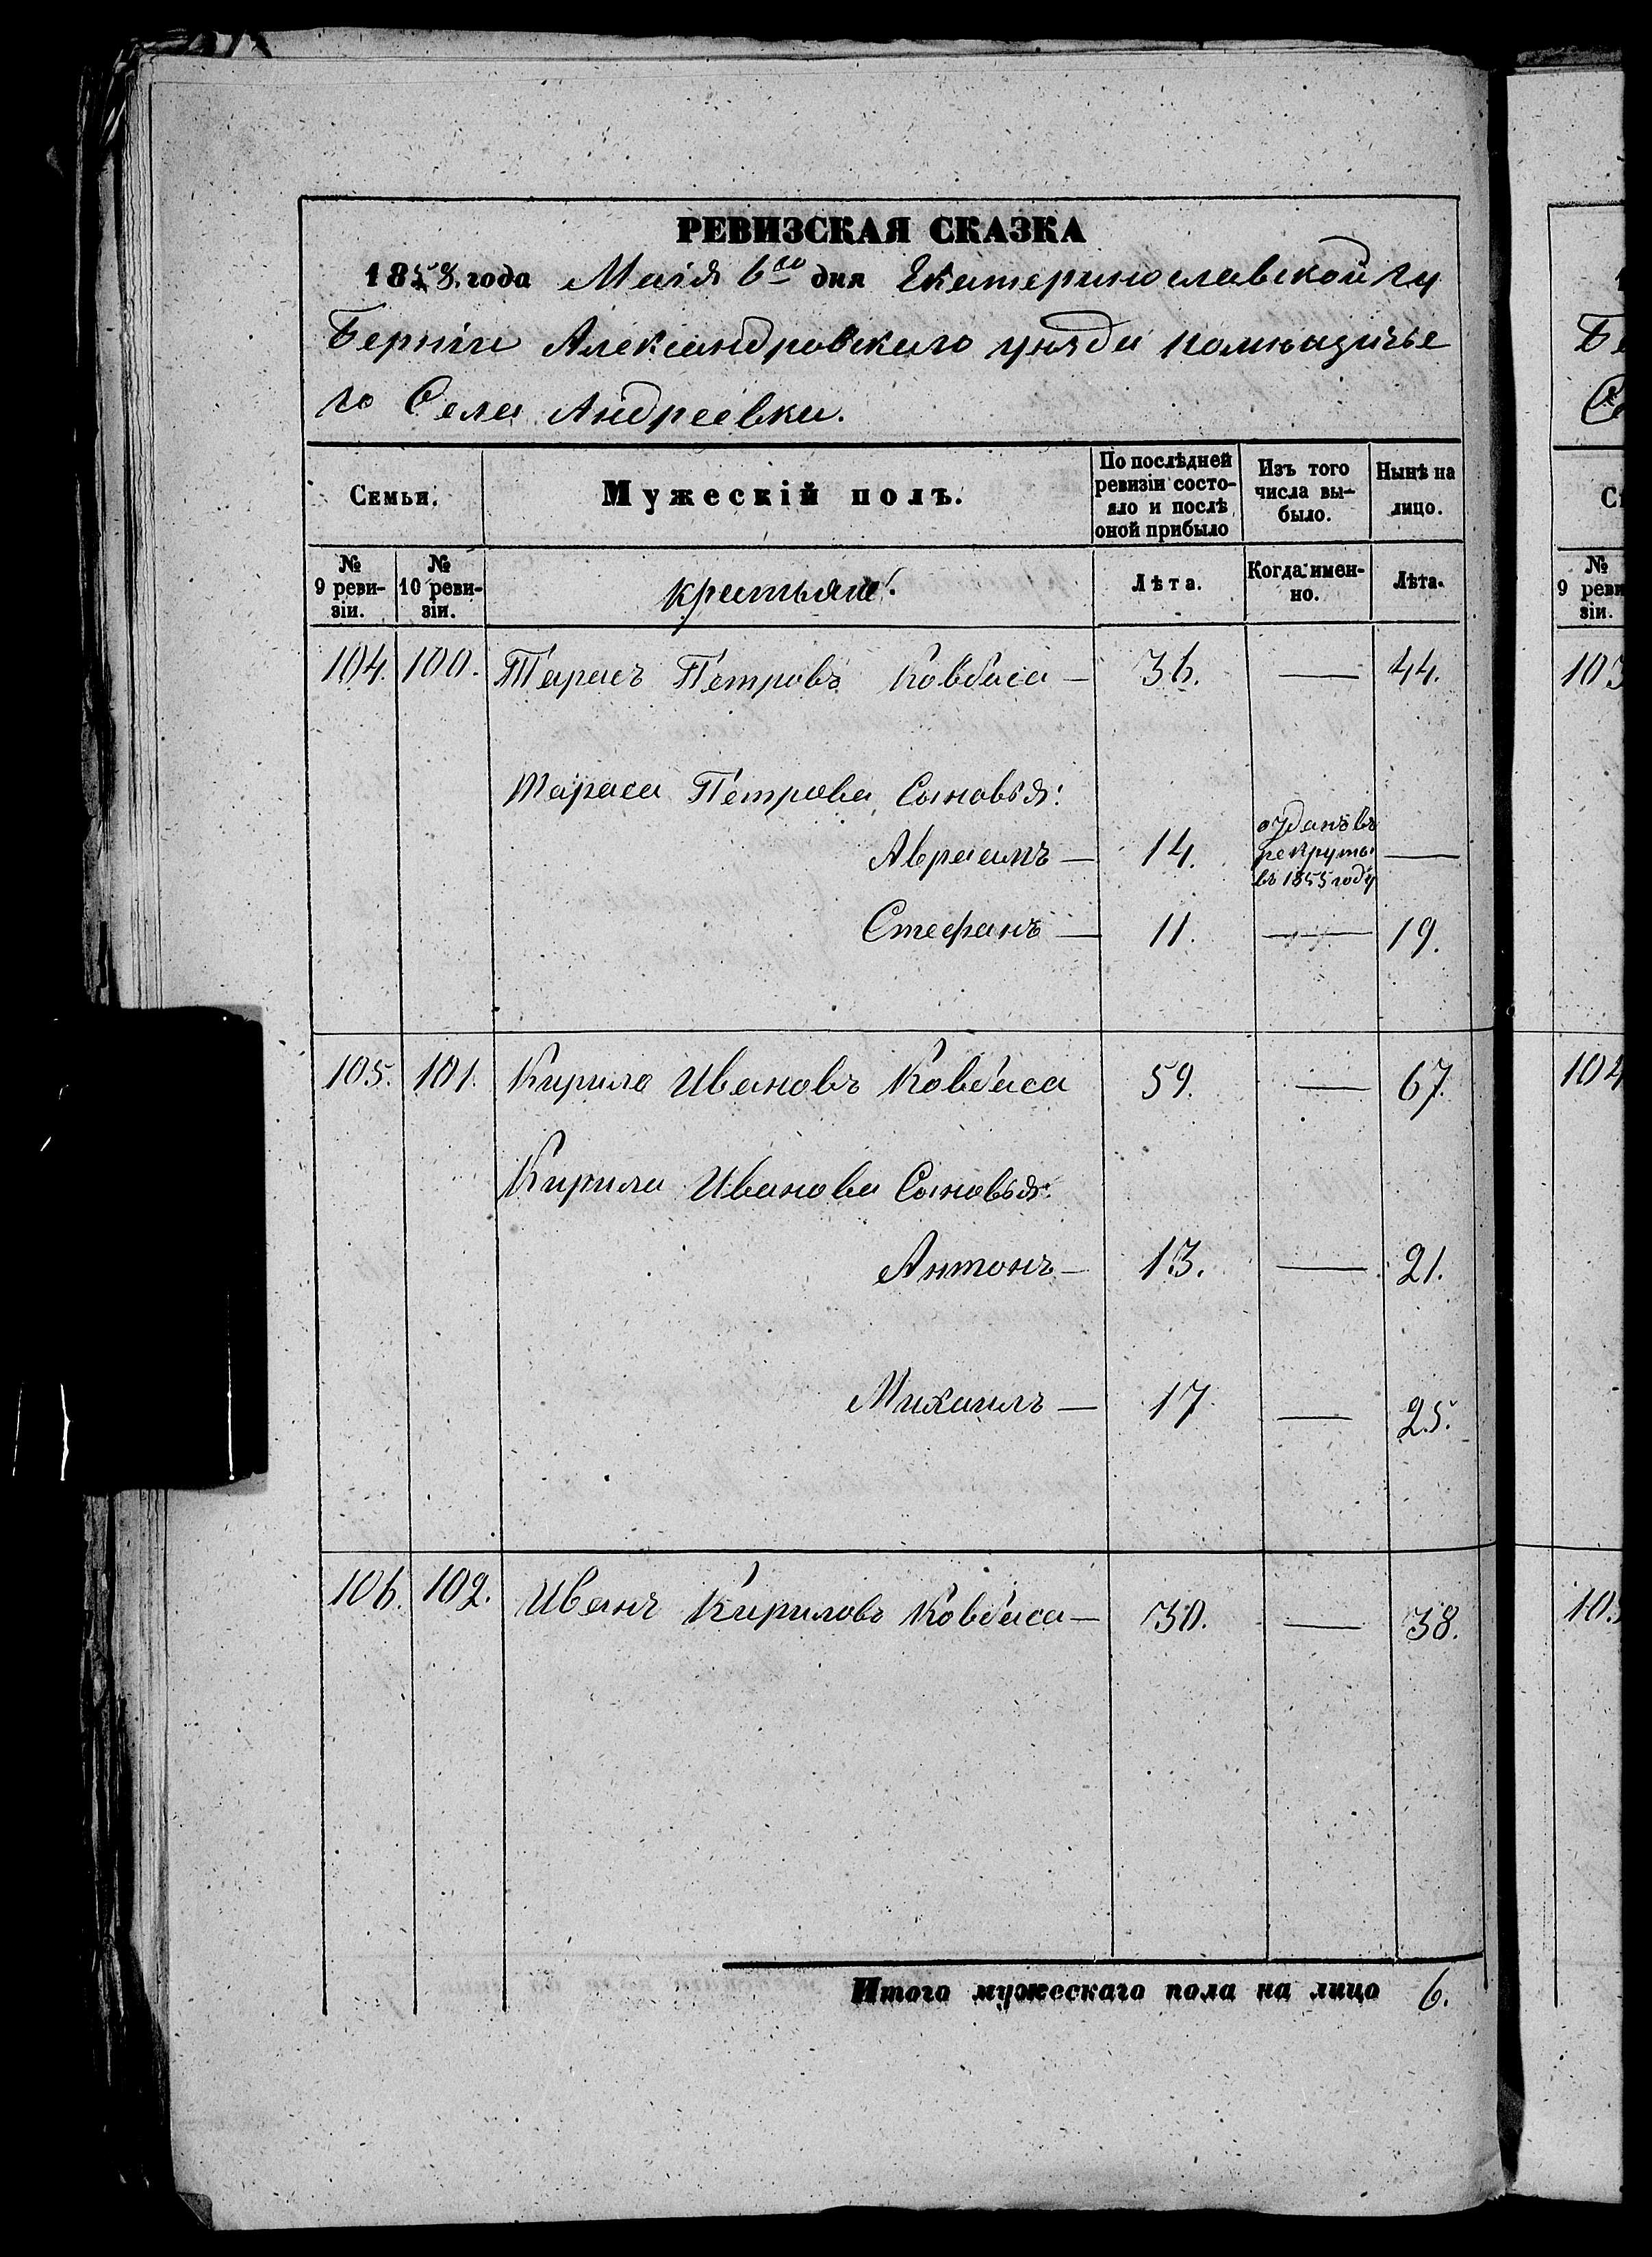 РЕВИЗСКАЯ СКАЗКА
1858. года Маія 6го дня Екатеринославской гу
берніи Александровскаго уѣзда помѣщичье
го Села Андреевки.
Семьи.
Мужескій полъ.
По послѣдней
ревизіи состо-
яло и послѣ
оной прибыло
Изъ того
числа вы-
было.
Нынѣ на
лицо.
№
9 реви-
зіи.
№
10 реви-
зіи.
крестьяне:
Лѣта.
Когда имен-
но.
Лѣта.
104. 100. Тарасъ Петровъ Ковбаса — 36. — 44.
Тараса Петрова Сыновья:
Авраамъ — 14. отданъ въ
рекруты
въ 1855 году —
Стефанъ — 11. — 19.
105. 101. Кирило Ивановъ Ковбаса 59. — 67.
Кирила Иванова Сыновья:
Антонъ — 13. — 21.
Михаилъ — 17. — 25.
106. 102. Иванъ Кириловъ Ковбаса — 30. — 38.
Итого мужескаго пола на лицо 6.
№
9 реви
зіи.
103
104